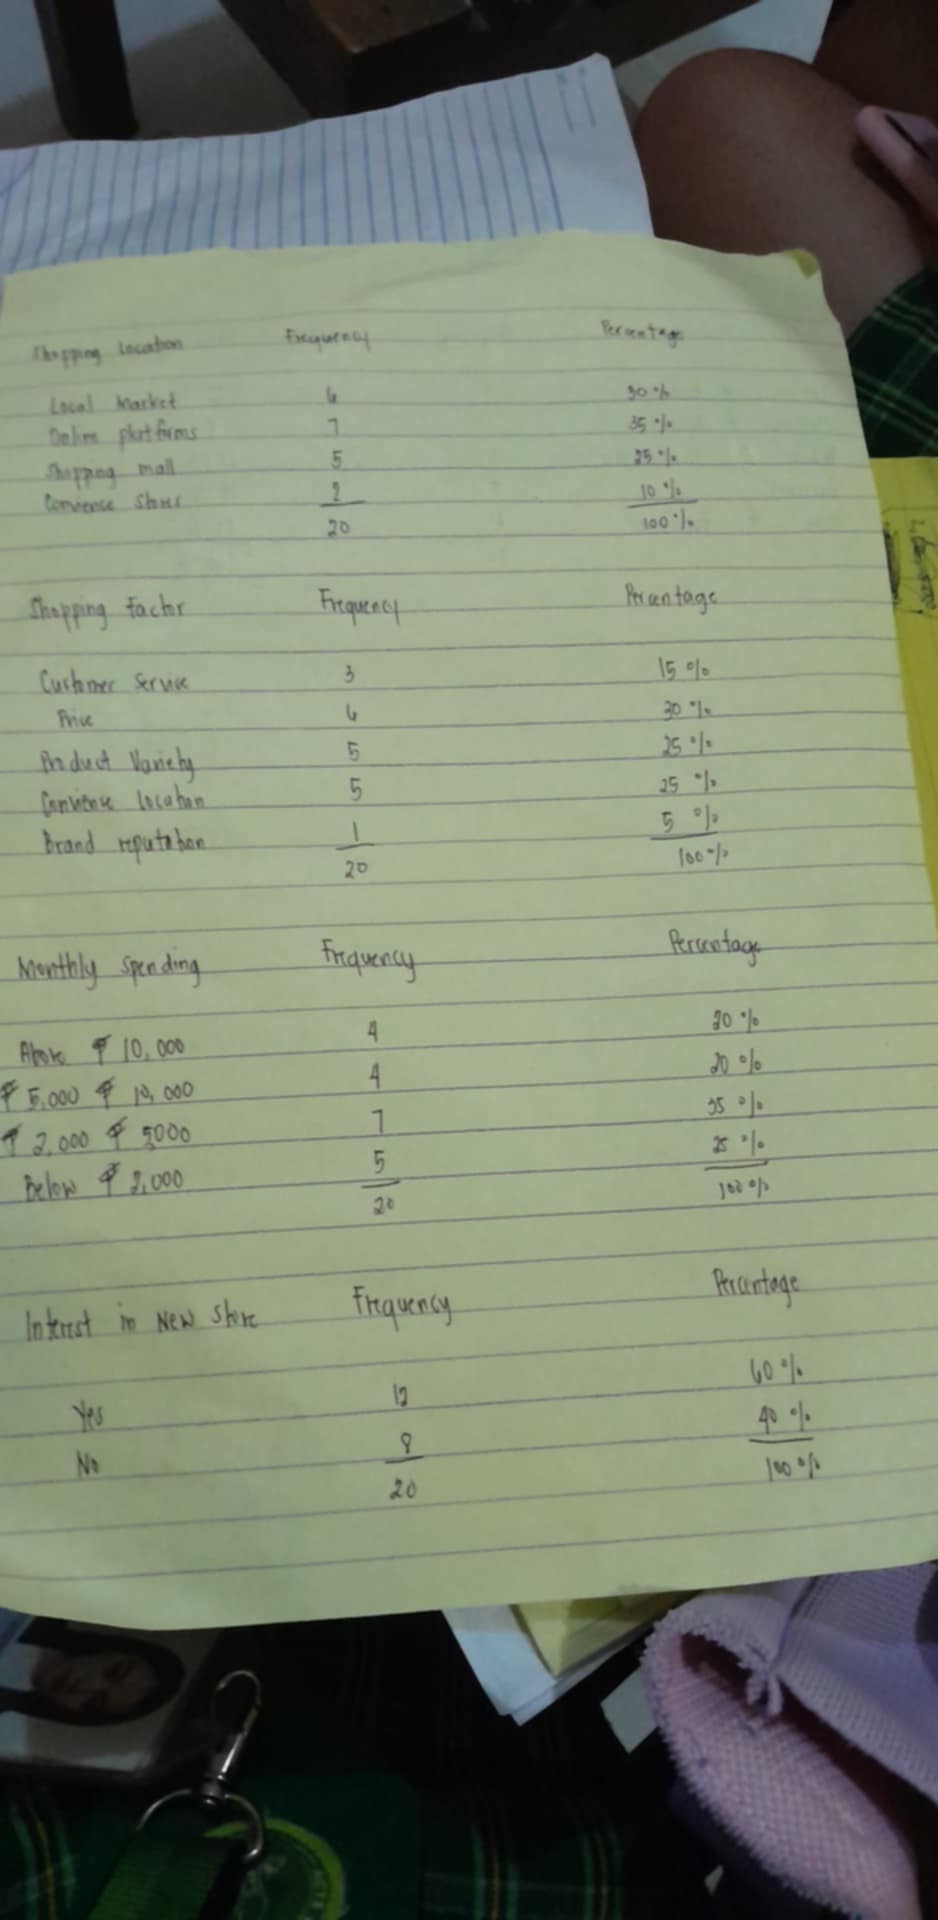 Shopping Location Frequency Percentage
Local Market 6 30 %
Online platforms 7 35 %
Shopping mall 5 25 %
Convience Stores 2 10 %
20 100 %
Shopping factor Frequency Percentage
Customer Service 3 15 %
Price 6 30 %
Product Variety 5 25 %
Convience location 5 25 %
Brand reputation 1 5 %
20 100 %
Monthly spending Frequency Percentage
Above ₱ 10,000 4 20 %
₱ 5,000 ₱ 10,000 4 20 %
₱ 2,000 ₱ 5000 7 35 %
Below ₱ 2,000 5 25 %
20 100 %
Interest in New Store Frequency Percentage
Yes 12 60 %
No 8 40 %
20 100 %